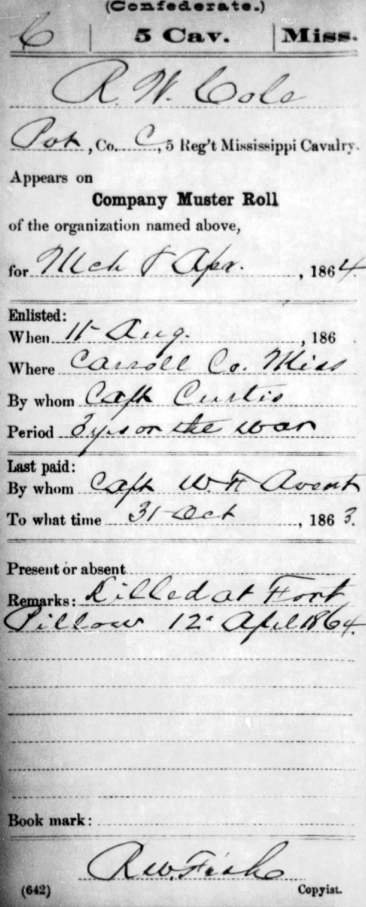 (Confederate.)
C | 5 Cav. | Miss.
R. W. Cole
Pvt, Co. C, 5 Reg't Mississippi Cavalry.
Appears on
Company Muster Roll
of the organization named above,
for Mch & Apr. , 1864.
Enlisted:
When 11 Aug. , 186 .
Where Carroll Co. Miss
By whom Capt Curtis
Period 3 yrs or the war
Last paid:
By whom Capt W H Avent
To what time 31 Oct , 1863.
Present or absent
Remarks: Killed at Fort
Pillow 12" April 1864.
Book mark:
R W. Fish
(642) Copyist.